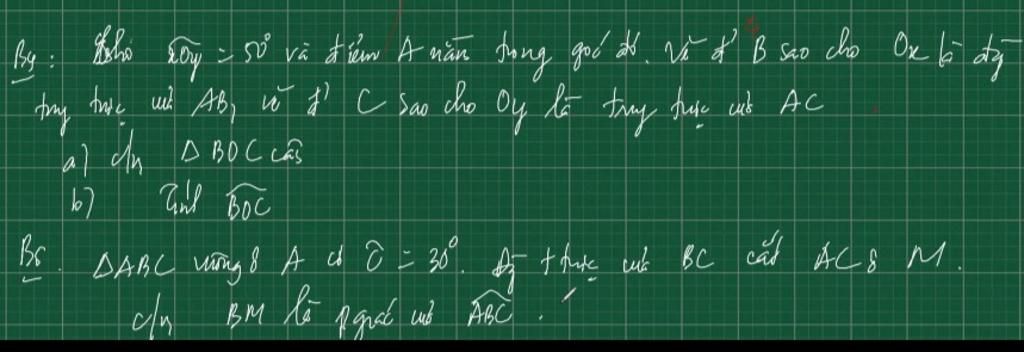 B4: Cho xOy = 50° và điểm A nằm trong góc đó. Vẽ đ' B sao cho Ox là đg
trung trực của AB, vẽ đ' C sao cho Oy là trung trực của AC
a) c/m Δ BOC cân
b) Tính BOC
B5. ΔABC vuông ở A có C = 30°. Đg t trực của BC cắt AC ở M.
c/m BM là p giác của ABC.